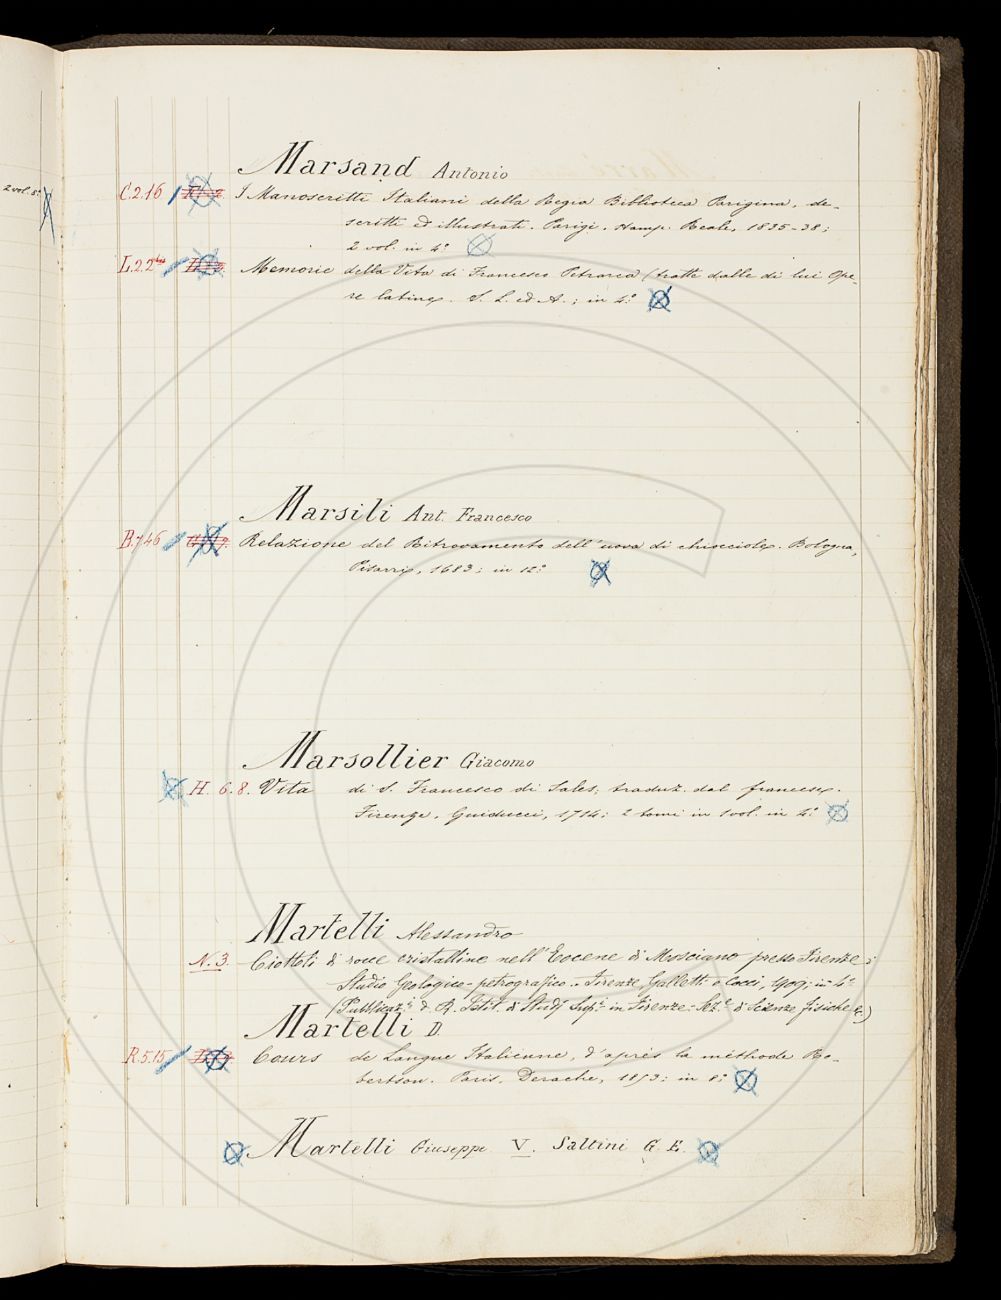 2 vol. 8°
Marsand Antonio
C.2.16 I Manoscritti Italiani della Regia Biblioteca Parigina, de-
scritti ed illustrati. Parigi, Stamp. Reale, 1835-38;
2 vol. in 4°
L.2.2 Memorie della Vita di Francesco Petrarca (tratte dalle di lui Ope-
re latine. S. L. ed A.; in 4°
Marsili Ant. Francesco
B.7.46 Relazione del Ritrovamento dell'uova di chiocciole. Bologna,
Pisarri, 1683; in 12°
Marsollier Giacomo
H. 6.8. Vita di S. Francesco di Sales, traduz. dal francese.
Firenze, Guiducci, 1714; 2 tomi in 1 vol. in 4°
Martelli Alessandro
N.3. Ciottoli di rocce cristalline nell'Eocene di Mosciano presso Firenze;
Studio Geologico-petrografico. Firenze, Galletti e Cocci, 1909; in 4°
(Pubblicaz.i d. R. Istit. di Studj Sup.i in Firenze. Sez.e di Scienze fisiche &.)
Martelli D
R.5.15 Cours de Langue Italienne, d'après la méthode Ro-
bertson. Paris, Derache, 1853; in 8°
Martelli Giuseppe V. Saltini G. E.